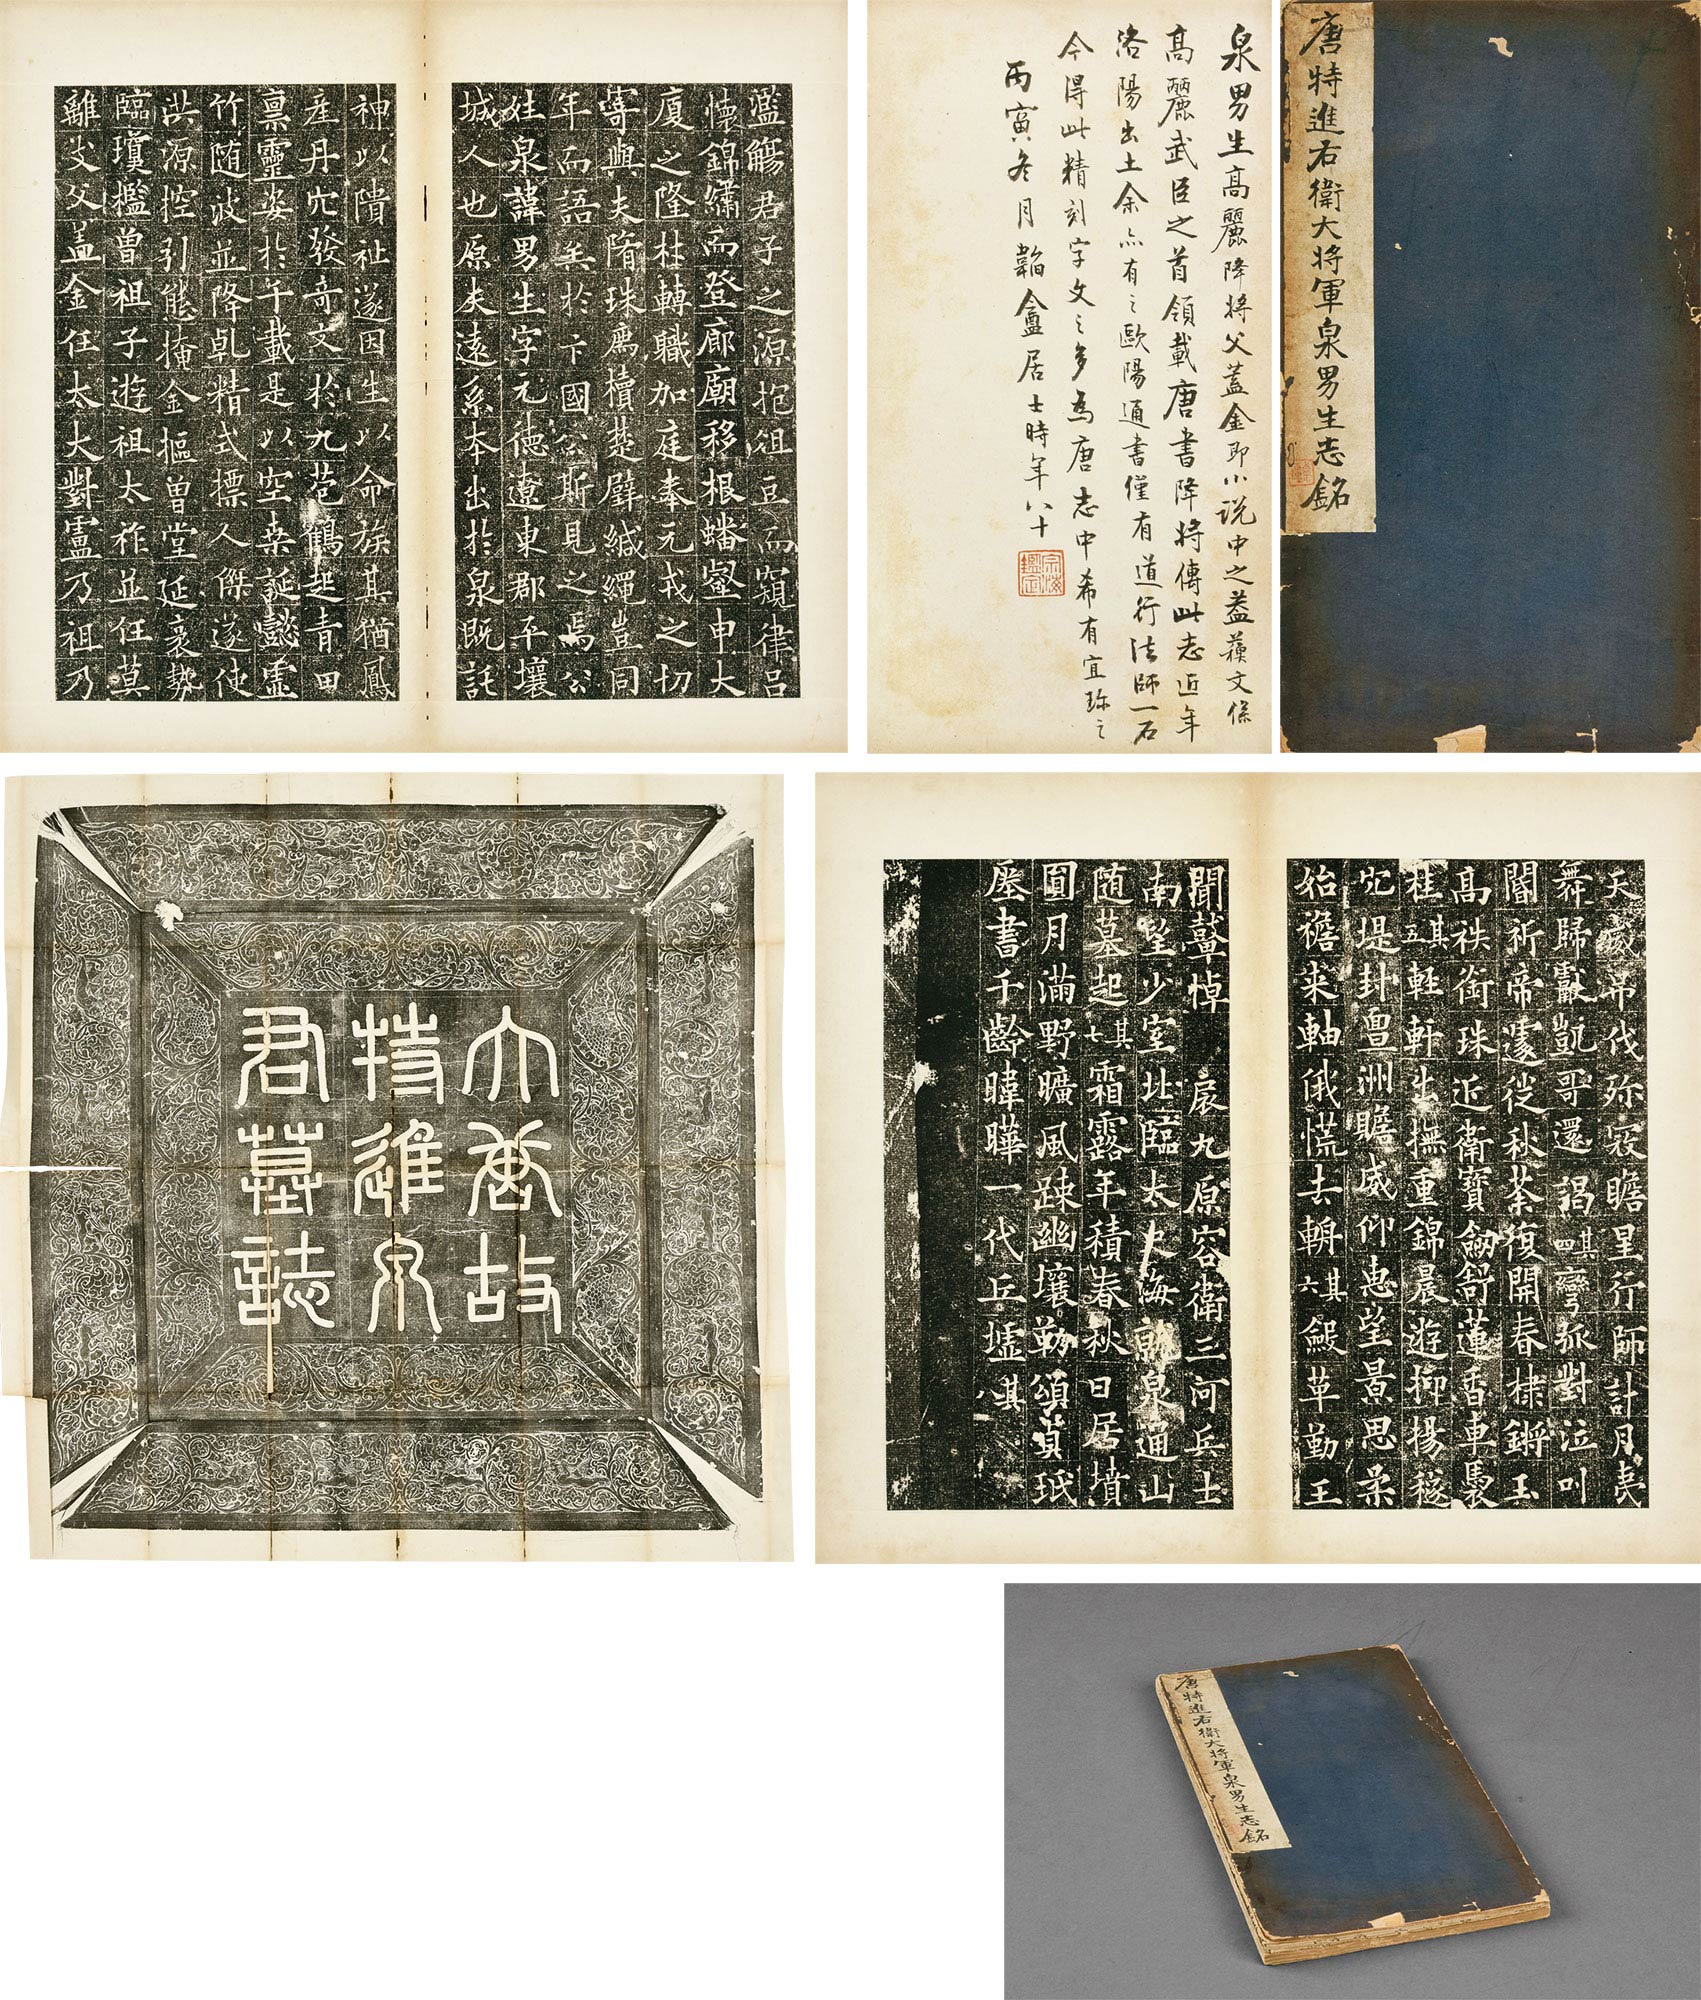 濫觴君子之源抱俎豆而窺律呂
懷錦繡而登廊廟移根蟠壑申大
廈之隆柱轉職加庭奉元戎之切
寄與夫隋珠薦櫝楚璧緘繩豈同
年而語矣於卞國公斯見之焉公
姓泉諱男生字元德遼東郡平壤
城人也原夫遠系本出於泉既託
神以隤祉遂因生以命族其猶鳳
產丹穴發奇文於九苞鶴起青田
稟靈姿於千載是以空桑誕懿虛
竹随波並降乹精式標人傑遂使
洪源控引態掩金樞曾堂延袤勢
臨瓊檻曾祖子遊祖太祚並任莫
離支父盖金任太大對盧乃祖乃
泉男生高麗降將父蓋金即小说中之蓋蘓文係
高麗武臣之首領載唐書降將傳此志近年
洛陽出土余亦有之歐陽通書僅有道行法師一石
今得此精刻字文之多為唐志中希有宜珎之
丙寅冬月韜盦居士時年八十
唐特進右衛大将軍泉男生志銘
大唐故
特進泉
君墓誌
天威吊伐弥寇瞻星行師計月夷
舞歸獻凱哥還謁其四彎弧對泣叫
閽祈帝遽従秋荼復開春棣鏘玉
高秩銜珠近衛寶劒舒蓮香車裛
桂其五輊軒出撫重錦晨遊抑揚稷
穴堤封亶洲瞻威仰惠望景思柔
始襜来軸俄慌去輈其六縠革勤王
聞鼙悼扆九原容衛三河兵士
南望少室北臨太史海就泉通山
随墓起其七霜露年積春秋日居墳
圓月滿野曠風踈幽壤勒頌貞珉
塵書千齡暐曄一代丘墟其八
唐特進右衛大将軍泉男生志銘